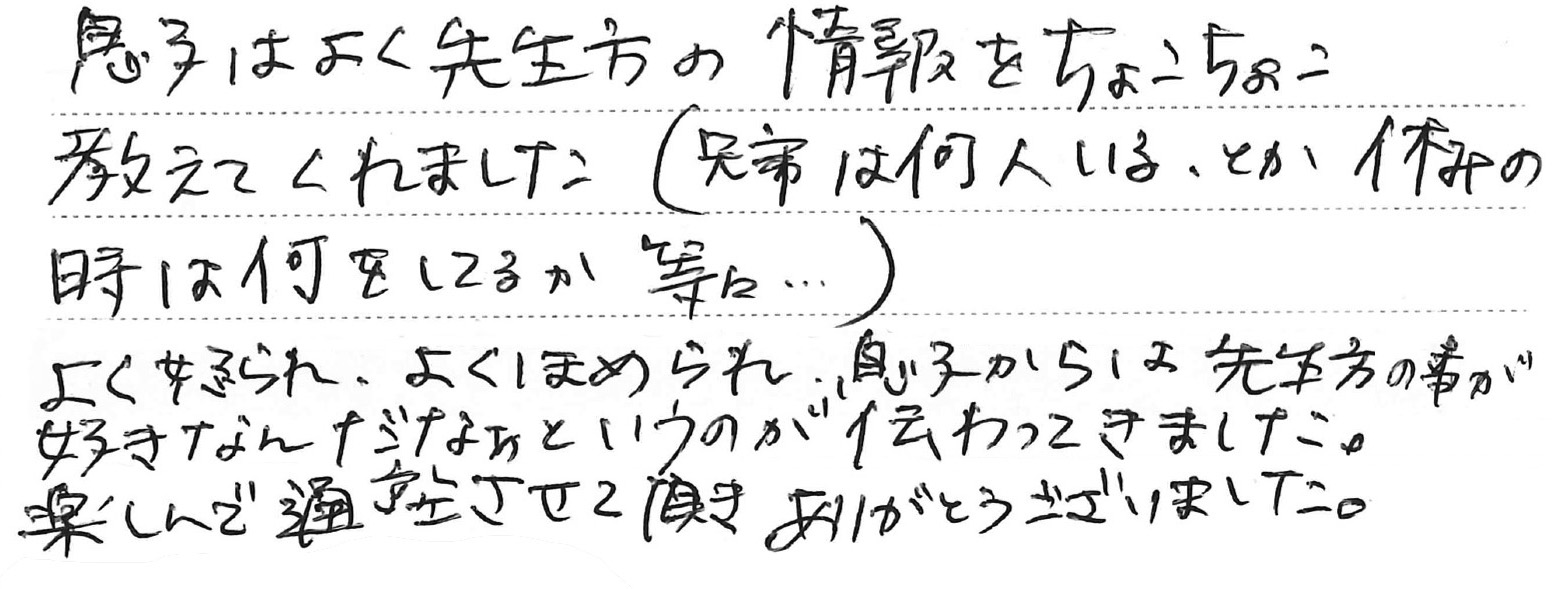 息子はよく先生方の情報をちょこちょこ
教えてくれました(兄弟は何人いる、とか休みの
時は何をしてるか等々…)
よく怒られ、よくほめられ、息子からは先生方の事が
好きなんだなぁというのが伝わってきました。
楽しんで通塾させて頂きありがとうございました。